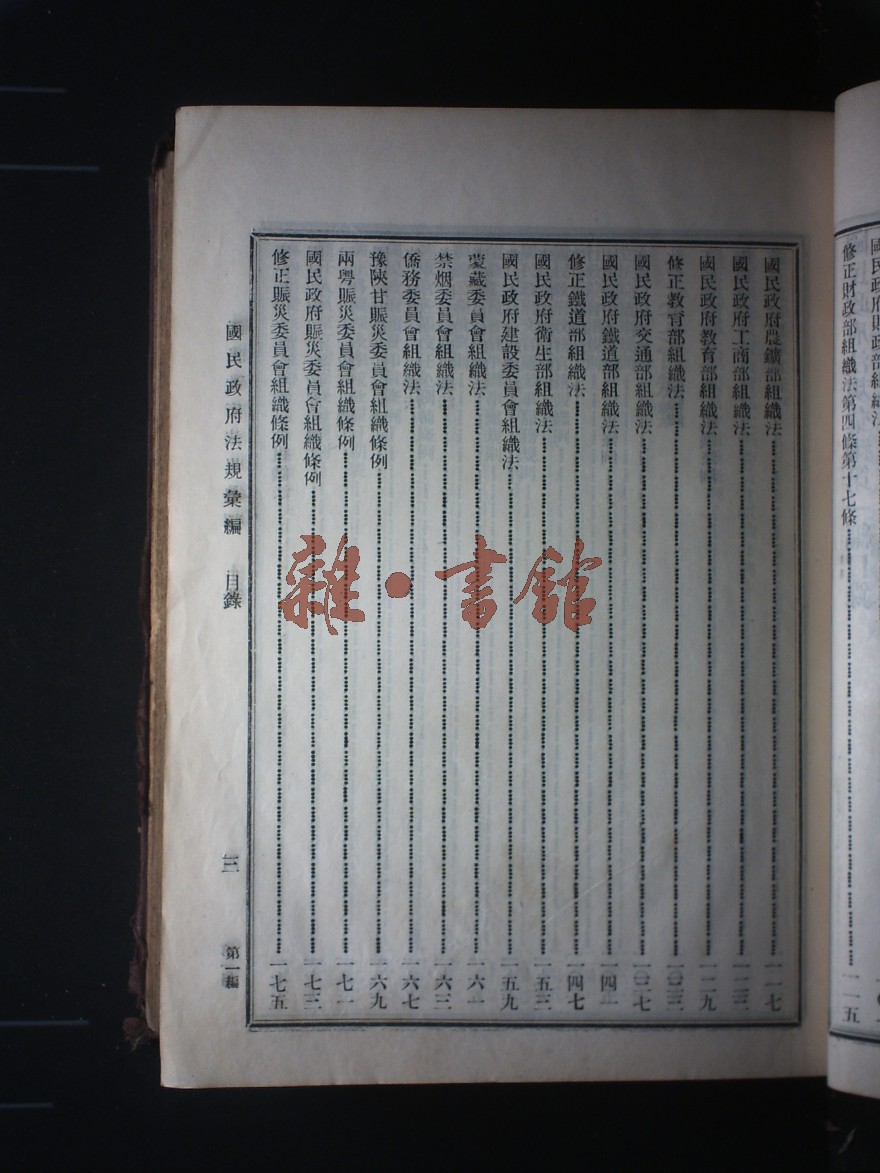 國民政府財政部組織法
修正財政部組織法第四條第十七條……一一五
國民政府農鑛部組織法……一一七
國民政府工商部組織法……一二三
國民政府教育部組織法……一二九
修正教育部組織法……一三三
國民政府交通部組織法……一三七
國民政府鐵道部組織法……一四一
修正鐵道部組織法……一四七
國民政府衛生部組織法……一五三
國民政府建設委員會組織法……一五九
蒙藏委員會組織法……一六一
禁烟委員會組織法……一六三
僑務委員會組織法……一六七
豫陝甘賑災委員會組織條例……一六九
兩粵賑災委員會組織條例……一七一
國民政府賑災委員會組織條例……一七三
修正賑災委員會組織條例……一七五
國民政府法規彙編 目錄 三 第一編
雜·書館